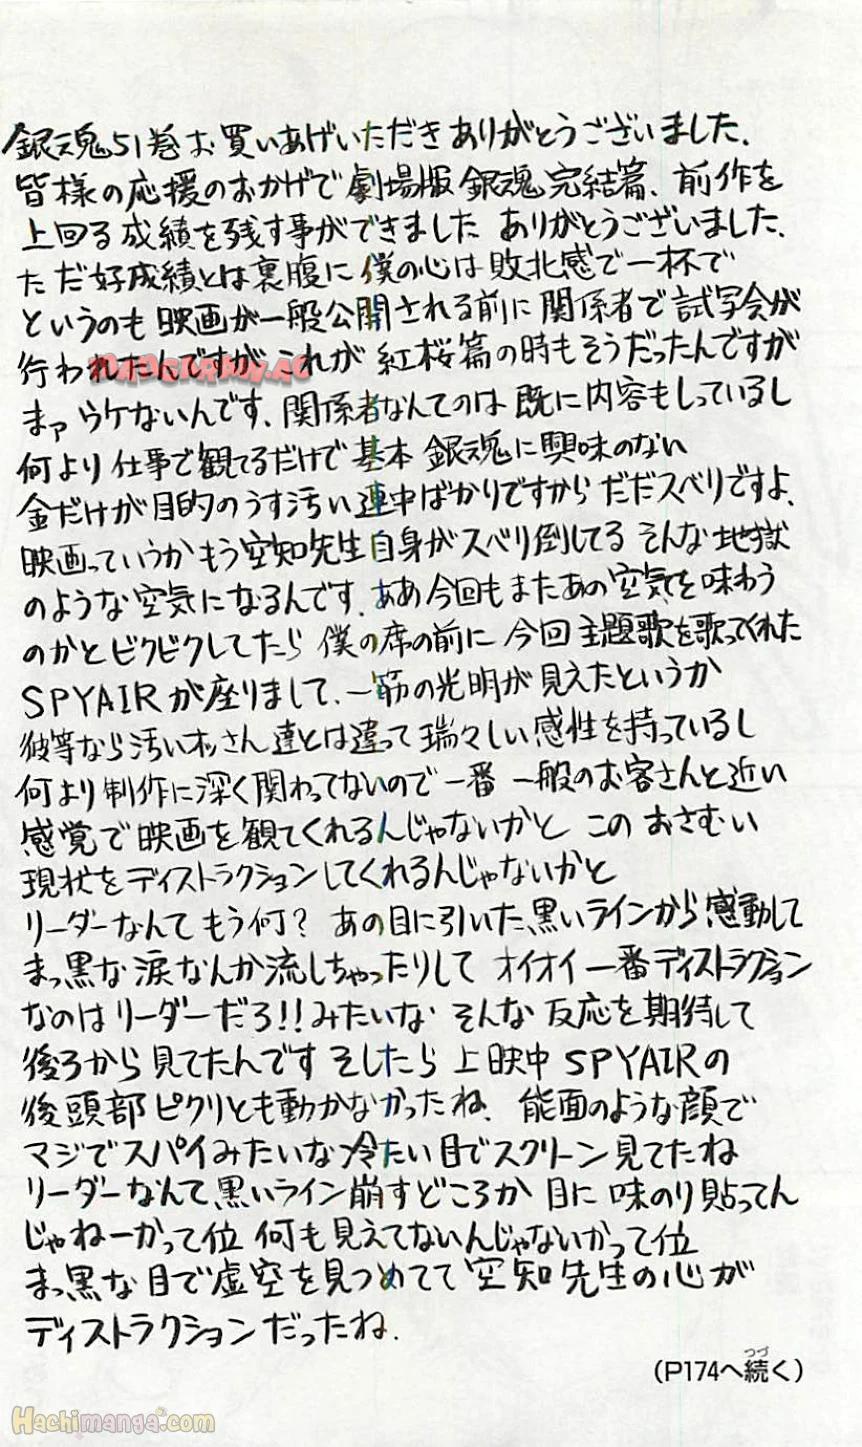 銀魂51巻お買いあげいただきありがとうございました、
皆様の応援のおかげで劇場版銀魂完結篇、前作を
上回る成績を残す事ができました ありがとうございました、
ただ好成績とは裏腹に僕の心は敗北感で一杯で
というのも映画が一般公開される前に関係者で試写会が
行われたんですがこれが紅桜篇の時もそうだったんですが
まァウケないんです、関係者なんてのは既に内容もしっているし
何より仕事で観てるだけで基本銀魂に興味のない
金だけが目的のうす汚い連中ばかりですからだだスベリですよ、
映画っていうかもう空知先生自身がスベリ倒してる そんな地獄
のような空気になるんです、ああ今回もまたあの空気を味わう
のかとビクビクしてたら僕の席の前に今回主題歌を歌ってくれた
SPYAIRが座りまして、一筋の光明が見えたというか
彼等なら汚いオッさん達とは違って瑞々しい感性を持っているし
何より制作に深く関わってないので一番一般のお客さんと近い
感覚で映画を観てくれるんじゃないかと このおさむい
現状をディストラクションしてくれるんじゃないかと
リーダーなんてもう何? あの目に引いた黒いラインから感動して
まっ黒な涙なんか流しちゃったりして オイオイ一番ディストラクション
なのはリーダーだろ!!みたいな そんな反応を期待して
後ろから見てたんです そしたら上映中SPYAIRの
後頭部ピクリとも動かなかったね、能面のような顔で
マジでスパイみたいな冷たい目でスクリーン見てたね
リーダーなんて黒いライン崩すどころか目に味のり貼ってん
じゃねーかって位 何も見えてないんじゃないかって位
まっ黒な目で虚空を見つめてて空知先生の心が
ディストラクションだったね.
(P174へ続く)
つづ
Hachimanga.com